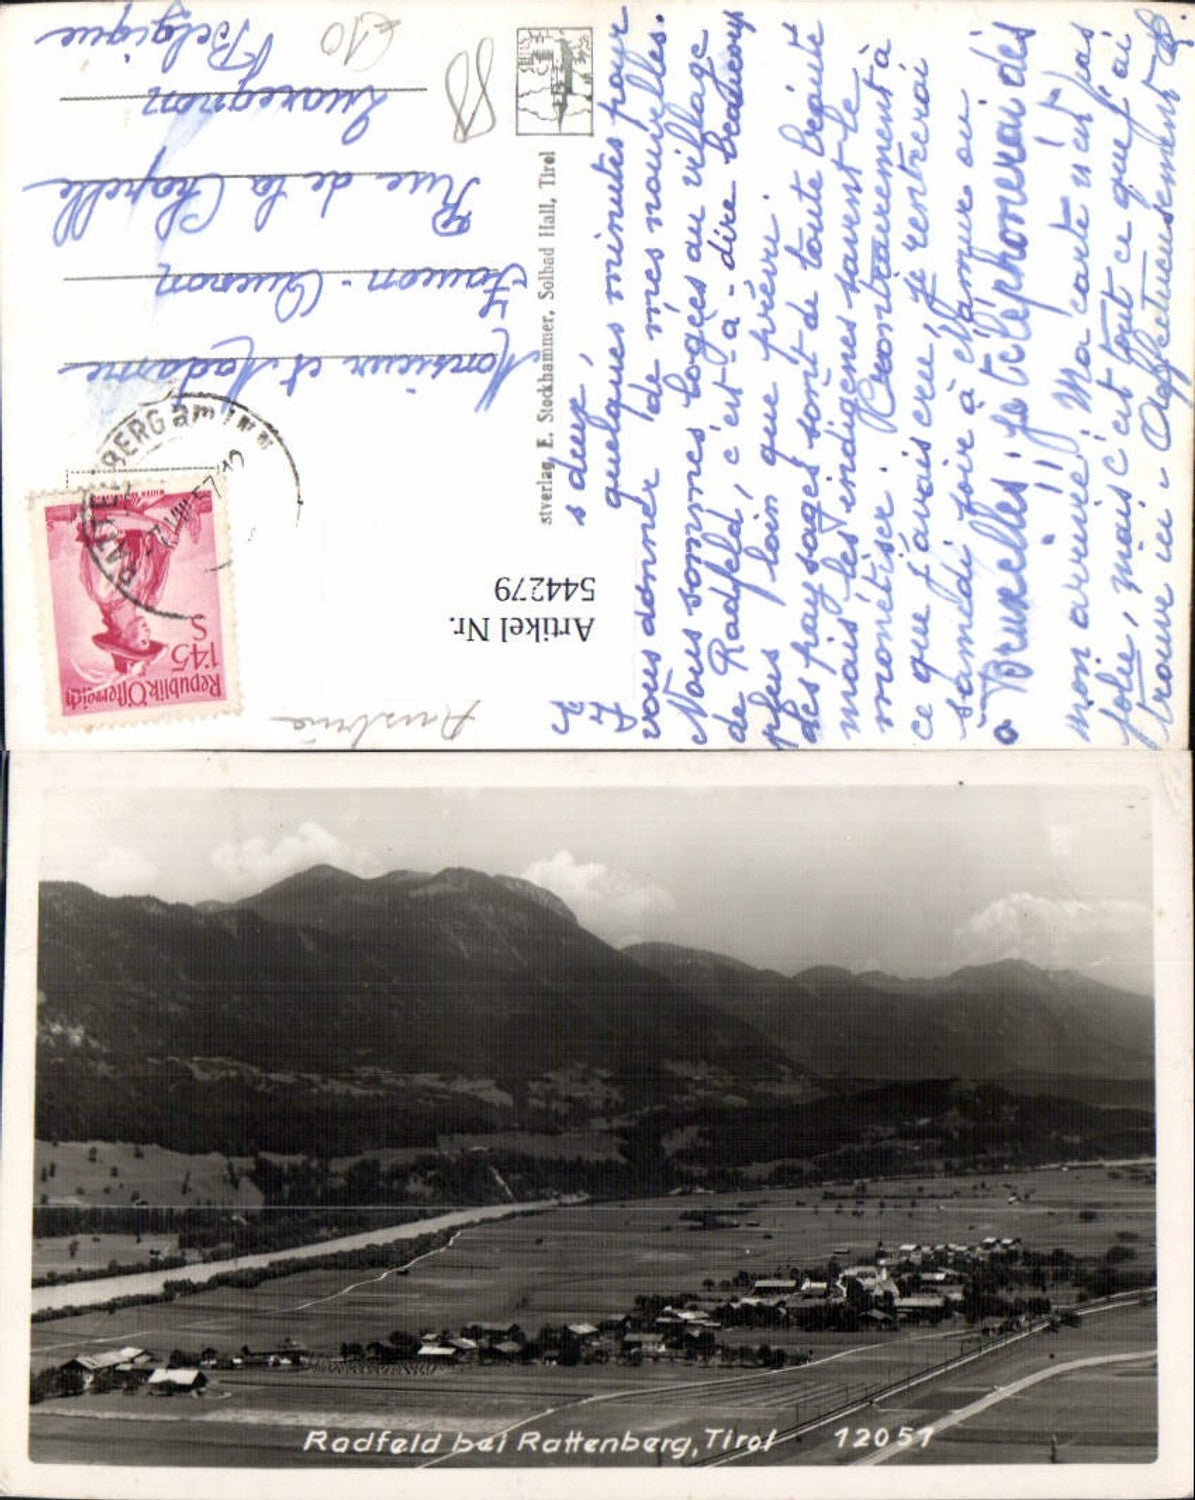 Chers deux,
quelques minutes pour
vous donner de mes nouvelles.
Nous sommes logés au village
de Radfeld, c'est-à-dire beaucoup
plus loin que prévu.
des paysages sont de toute beauté
mais les indigènes savent le
monétiser. Contrairement à
ce que j'avais cru, je rentrerai
samedi soir à
Bruxelles; je téléphonerai dès
mon arrivée. Ma carte n'est pas
jolie, mais c'est tout ce que j'ai
trouvé ici. Affectueusement
Austria
Artikel Nr.
544279
stverlag E. Stockhammer, Solbad Hall, Tirol
Republik Österreich
1'45
S
RATTENBERG am Inn
Monsieur et Madame
Faucon-
Rue de la Chapelle
Quaregnon
Belgique
€10
88
Radfeld bei Rattenberg, Tirol 12051